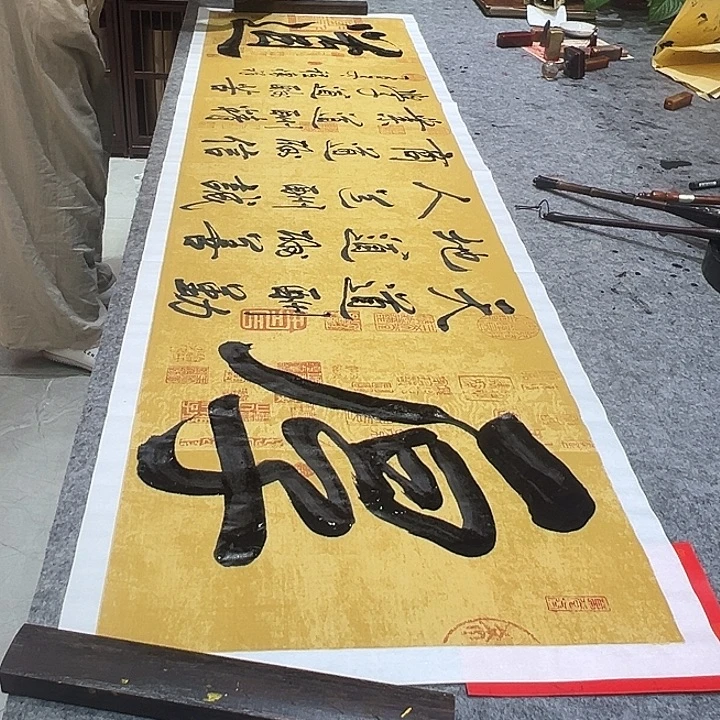 厚道
天道酬勤
地道酬善
人道酬誠
商道酬信
業道酬精
学道酬苦